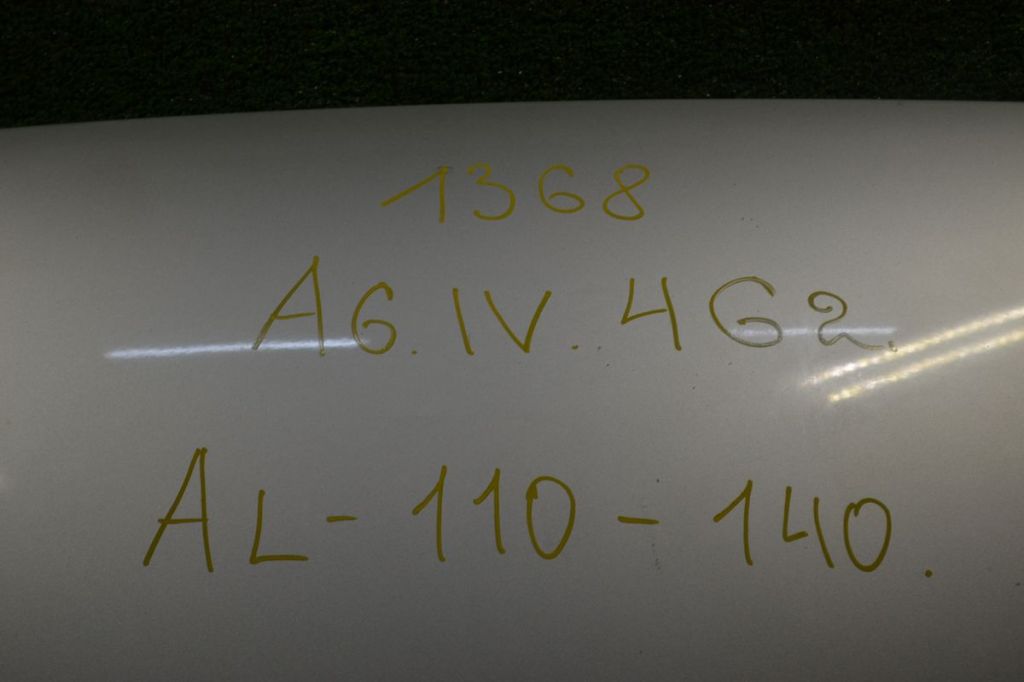 1368
A6.IV.4G2.
AL-110-140.